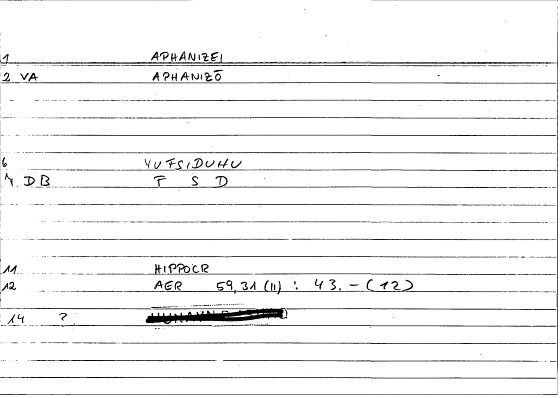 1 APHANIZEI
2 VA APHANIZŌ
6 YUFSIDUHU
DB F S D
11 HIPPOCR
12 AER 59,31 (11) : 43. - (12)
14 ?